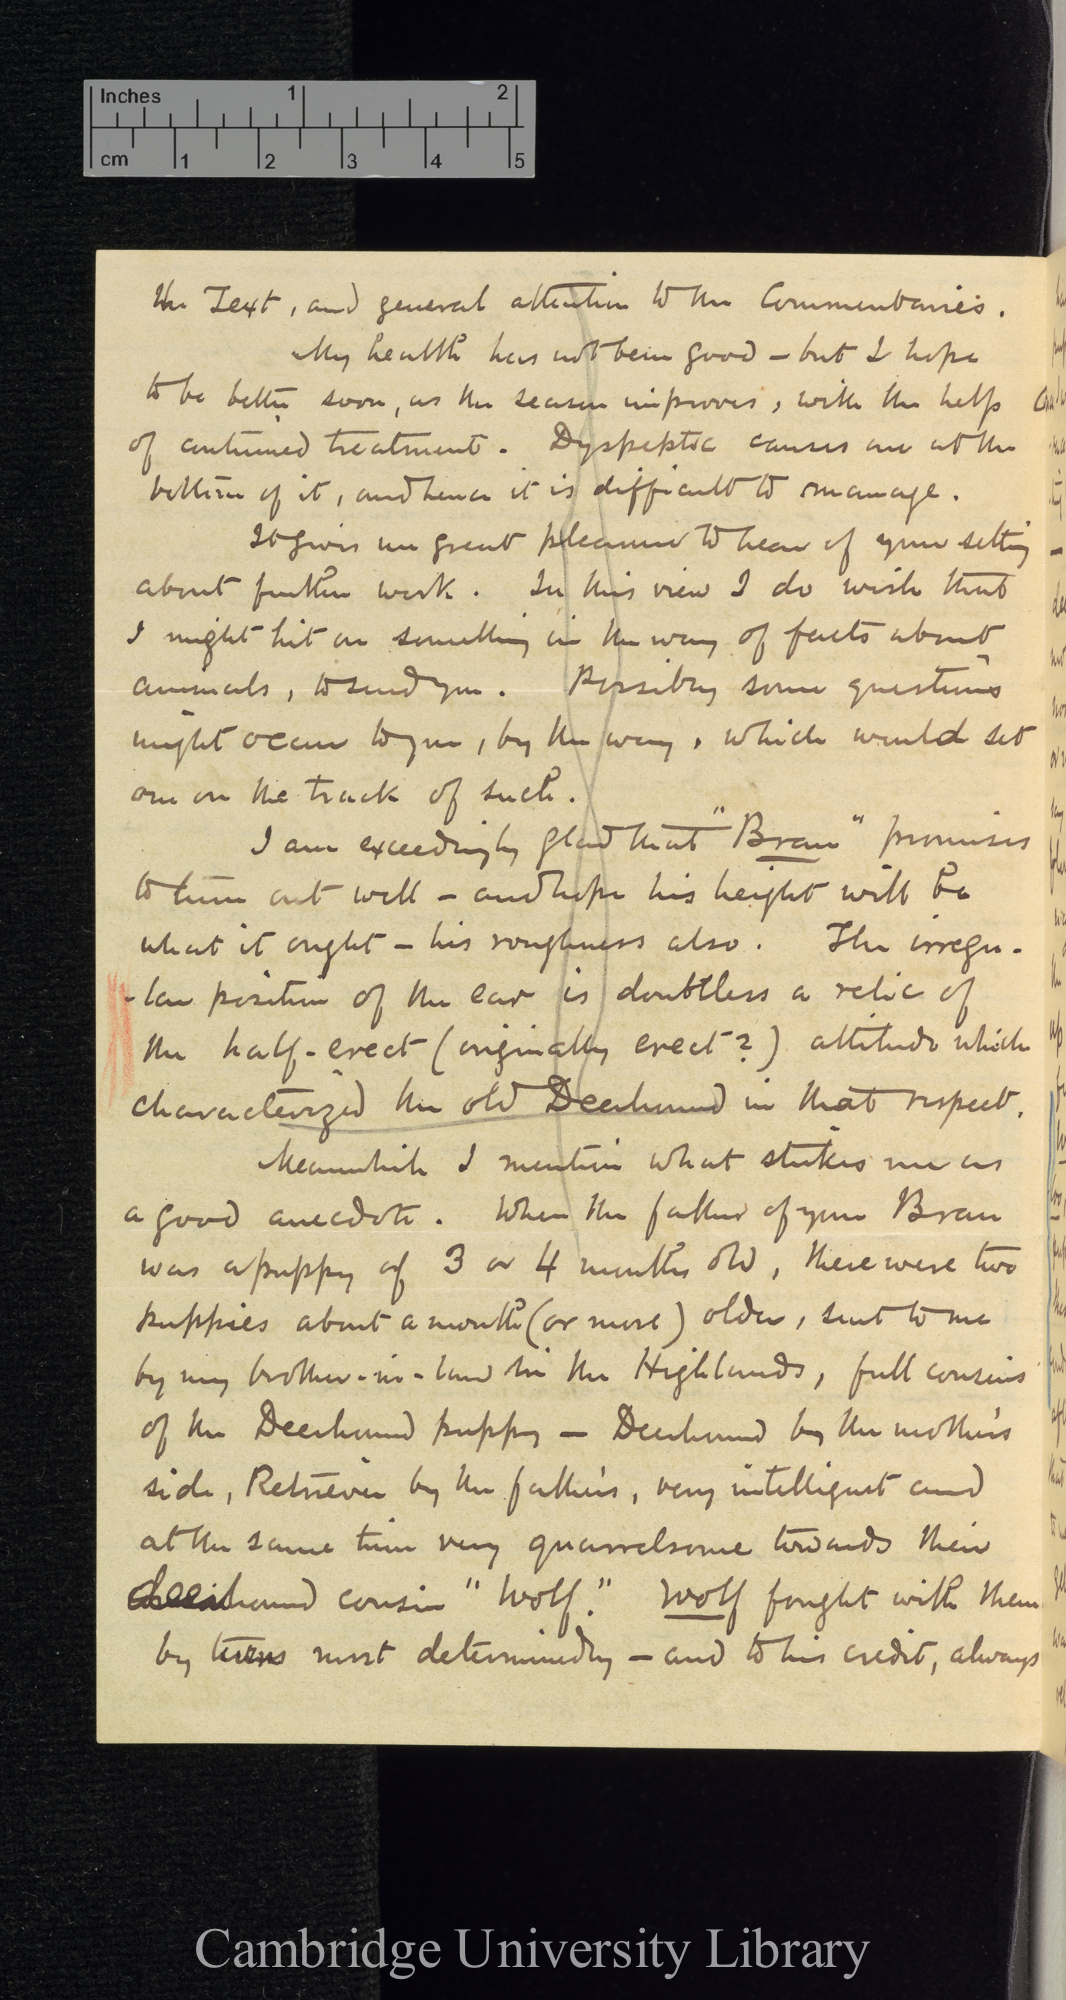 Inches 1 2
cm 1 2 3 4 5
the Text, and general attention to the Commentaries.
My health has not been good – but I hope
to be better soon, as the season improves, with the help
of continued treatment. Dyspeptic causes are at the
bottom of it, and hence it is difficult to manage.
It gives me great pleasure to hear of your setting
about further work. In this view I do wish that
I might hit on something in the way of facts about
animals, to send you. Possibly some questions
might occur to you, by the way, which would set
one on the track of such.
I am exceedingly glad that "Bran" promises
to turn out well – and hope his height will be
what it ought – his roughness also. The irregu-
-lar position of the ear is doubtless a relic of
the half-erect (originally erect?) attitude which
characterized the old Deerhound in that respect.
Meanwhile I mention what strikes me as
a good anecdote. When the father of your Bran
was a puppy of 3 or 4 months old, there were two
puppies about a month (or more) older, sent to me
by my brother-in-law in the Highlands, full cousins
of the Deerhound puppy – Deerhound by the mother's
side, Retriever by the father's, very intelligent and
at the same time very quarrelsome towards their
deerhound cousin "Wolf." Wolf fought with them
by turns most determinedly – and to his credit, always
Cambridge University Library